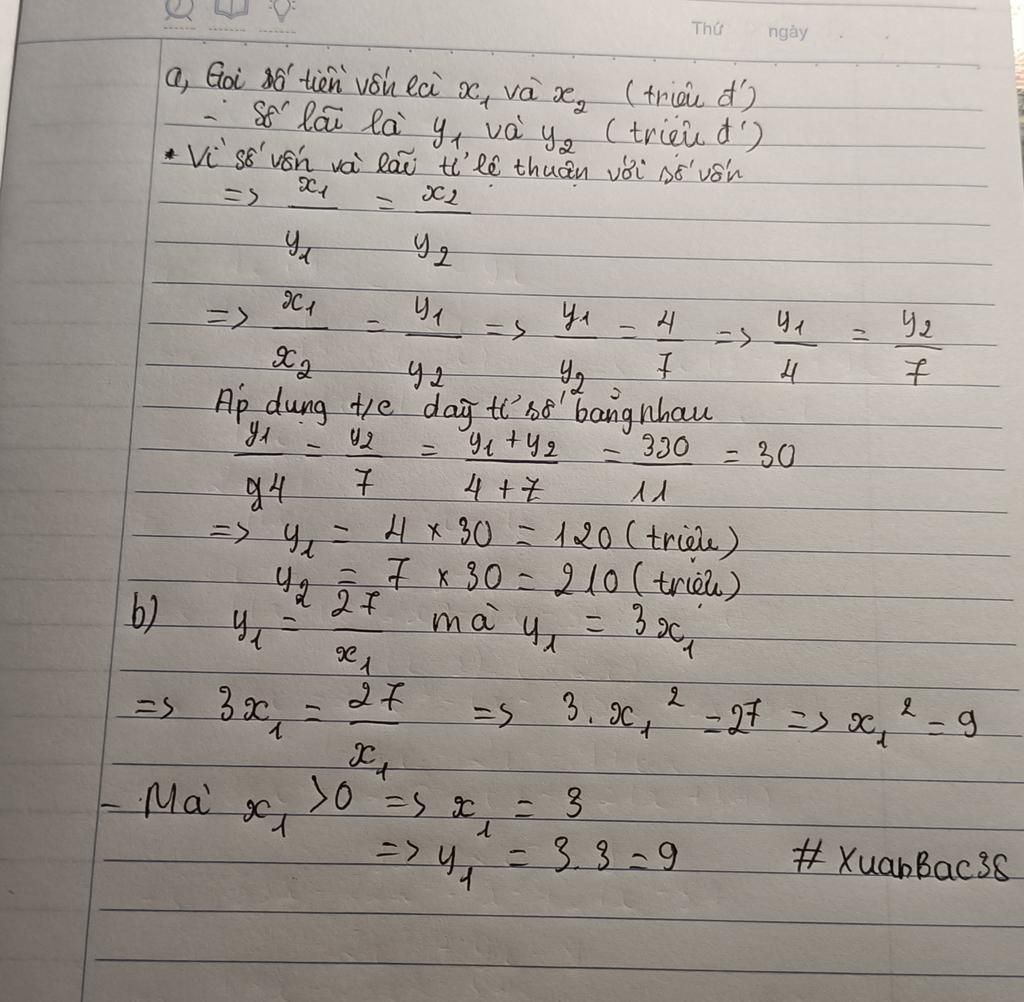 Thứ ngày
a, Gọi số tiền vốn là x₁ và x₂ (triệu đ)
- Số lãi là y₁ và y₂ (triệu đ)
* Vì số vốn và lãi tỉ lệ thuận với số vốn
=> x₁/y₁ = x₂/y₂
=> x₁/x₂ = y₁/y₂ => y₁/y₂ = 4/7 => y₁/4 = y₂/7
Áp dụng t/c dãy tỉ số bằng nhau
y₁/94 = y₂/7 = (y₁+y₂)/(4+7) = 330/11 = 30
=> y₁ = 4 × 30 = 120 (triệu)
y₂ = 7 × 30 = 210 (triệu)
b) y₁ = 27/x₁ mà y₁ = 3x₁
=> 3x₁ = 27/x₁ => 3.x₁² = 27 => x₁² = 9
- Mà x₁ >0 => x₁ = 3
=> y₁ = 3.3 = 9 # XuanBac38